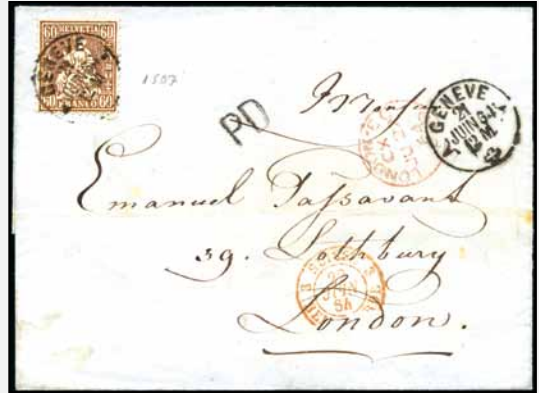 60 HELVETIA 60
60 FRANCO 60
GENEVE
1507
PD
GENEVE
21
JUIN 64
12 M
LONDON-E.C
CX
PAID
Emanuel Passavant
39. Lothbury
London.
SUISSE
22
JUIN
64